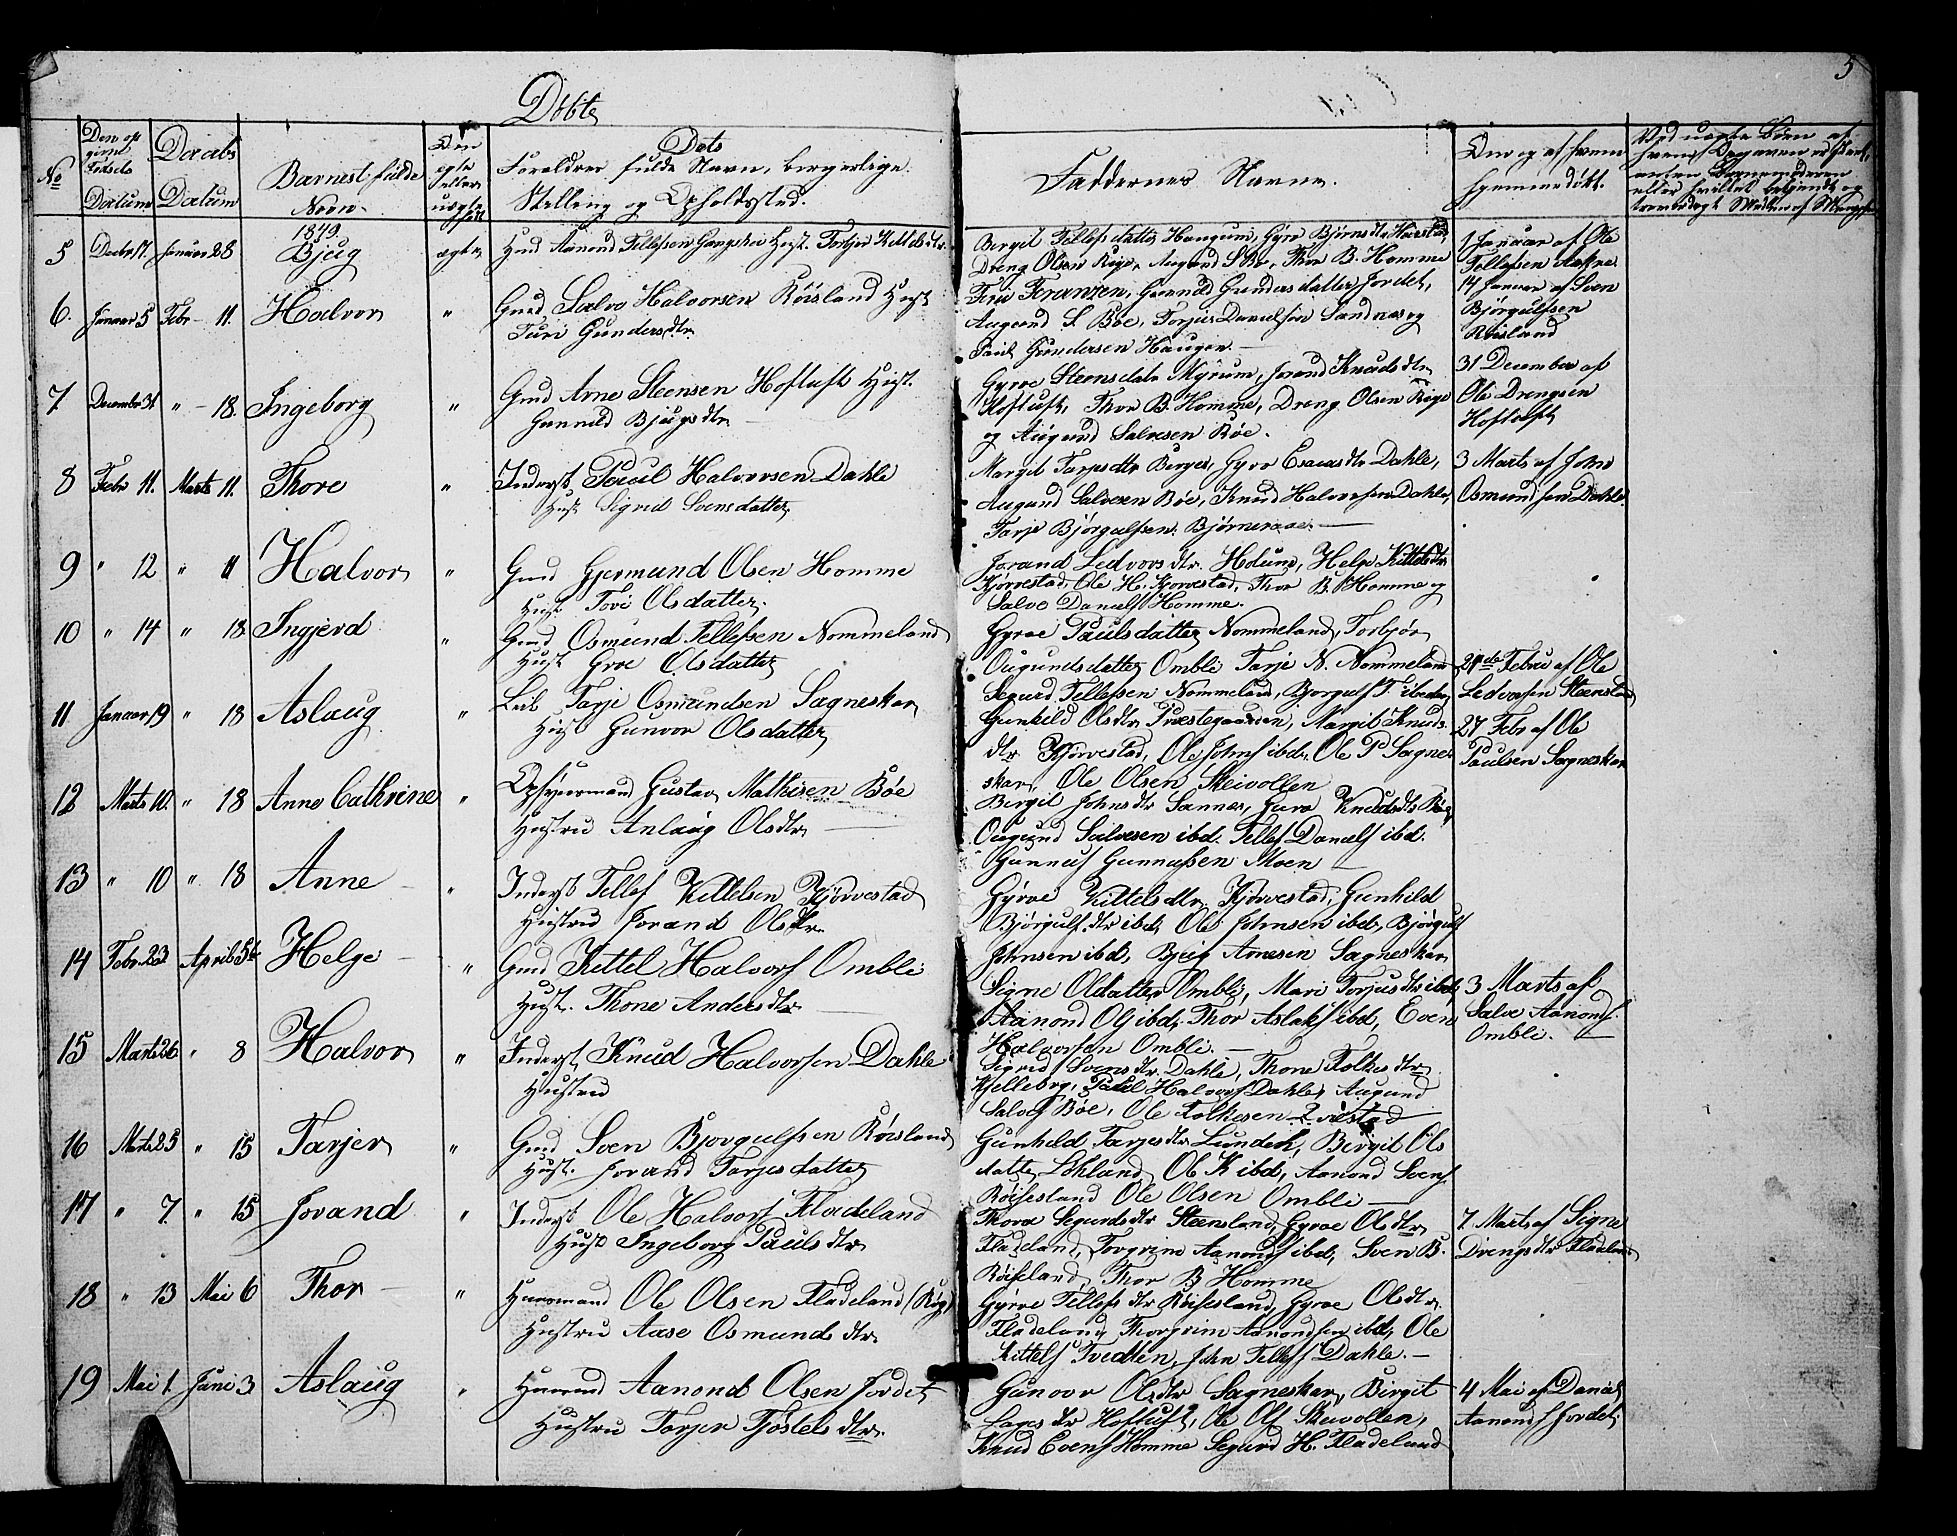 5
Døbte
No
Den op
givne
Fødsels
Datum
Daabs
Datum
Barnets fulde
Navn
Om
ægte
eller
uægte
født
Dets
Forældres fulde Navn, borgerlige
Stilling og Opholdssted.
Faddernes Navne.
Om og af hvem
hjemmedøbt.
Ved uægte Børn af
1849
5 Decbr 17. Januar 28 Bjug ægte Gmd Aanond Tellefsen Haugskei Hust. Torbjør Kittelsdtr.
Birgit Tellefsdatter Haugum, Gyro Bjørnsdtr Harstad,
Dreng Olsen Rige, Augund S. Bø, Thor B. Homme
1 Januar af Ole
Tellefsen
6. Januar 5 Febr - 11. Halvor " Gmd Salve Halvorsen Røisland Hust
Turi Gundersdtr.
Turi Frantzen, Gunnild Gundersdatter Jordet,
Augund S. Bøe, Torjus Danielsen Sandnes og
Paul Gundersen Haugen. -
14 Januar af Sven
Bjørgulfsen
Røisland
7 Decembr 31 " - 18. Ingeborg " Gmd Arne Steensen Hoftuft Hust.
Gunnild Bjugsdtr
Gyroe Steensdatr Myrum, Jorand Knudsdtr
Hoftuft, Thor B. Homme, Dreng Olsen Rige
og Augund Salvesen Bøe.
31 December af
Ole Drengsen
Hoftuft
8 Febr 11. Marts 11. Thore " Inderst Paul Halvorsen Dahle
Hust Sigrid Svensdatter
Margit Tarjesdtr Berges, Gyro Esaiasdtr Dahle,
Augund Salvesen Bøe, Knud Halvorsen Dahle,
Tarje Bjørgulfsen Bjørneraae. -
3 Marts af John
Osmundsen Dahle.
9 " 12 " 11 Halvor " Gmd Gjermund Olsen Homme
Hust Tove Olsdatter.
Jorand Ledvorsdtr. Holum, Helge Kittelsdtr
Kjørvestad, Ole H. Kjørvestad, Thor B. Homme og
Salve Daniels Homme.
10 " 14 " 18 Ingjerd " Gmd Osmund Tellefsen Nommeland
Hust Groe Olsdatter
Gyroe Paulsdatter Nommeland, Torbjør
Ougundsdatter Ombli Tarje N. Nommeland
Segurd Tellefsen Nommeland, Bjorgulf T. ibidem,
21de Febru af Ole
Ledvorsen Steensland
11 Januar 19 " 18 Aslaug " Leil Tarje Osmundsen Sagneskar
Hust Gunvor Olsdatter
Gunhild Olsdtr Præstegaarden, Margit Knuds.
dtr Kjørvestad, Ole Johns ibd, Ole P Sagne-
skar, Ole Olsen Skeivollen
27 Febr af Ole
Paulsen Sagneskar
12 Marts 10. " 18 Anne Cathrine " Opsynsmand Gustav Mathisen Bøe
Hustru Anlaug Olsdtr
Birgit Johnsdtr Sannes, Guro Knudsdtr Bøe,
Ougund Salvesen ibd. Tellef Daniels ibd.
Gunnuf Gunnufsen Moen
13 " 10 " 18 Anne " Inderst Tellef Kittelsen Kjørvestad
Hustru Jorand Olsdtr.
Gyroe Kittelsdtr Kjørvestad, Gunhild
Bjørgulfsdtr ibd, Ole Johnsen ibd, Bjørgulf
Johnsen ibd, Bjug Arnesen Sagneskar
14 Febr. 23 April 5te Helge " Gmd Kettel Halvors Ombli
Hust. Thone Andersdtr
Signe Oldatter Ombli, Mari Torjusdtr ibd,
Aanond Ols ibd. Thor Aslaks ibd, Even
Halvorsen Ombli. -
3 Marts af
Salve Aanonds.
Ombli.
15 Marts 26 " 8 Halvor " Inderst Knud Halvorsen Dahle
Hustru
Sigrid Svensdtr Dahle, Thone Folkesdtr
Kjelleberg, Paul Halvors Dahle, Augund
Salves Bøe, Ole Folkesen
16 Marts 25 " 15 Tarjer " Gmd Sven Bjorgulfsen Røisland
Hust. Jorand Tarjesdatter
Gunhild Tarjesdtr Lunden, Birgit Ols
datter Løkland, Ole K ibd, Aanond Svens
Røisesland Ole Olsen Ombli
17 " 7. " 15 Jorand " Inderst Ole Halvors Fladeland
Hust Ingeborg Paulsdtr
Thora Segurdsdtr Steensland, Gyroe Olsdtr
Fladeland, Torgrim Aanonds ibd, Sven B.
Røiseland, Thor B Homme
7. Marts af Signe
Drengsdtr Fladeland
18 " 13 Mai 6 Thor " Huusmand Ole Olsen Fladeland (Rige)
Hustru Aase Osmundsdtr.
Gyroe Tellefsdtr Røisesland, Gyroe Olsdtr.
Fladeland, Thorgrim Aanondsen ibd, Ole
Kittels Tvedten, John Tellefs Dahle. -
19 Mai 1. Juni 3 Aslaug " Huusmd Aanond Olsen Jordet
Hustru Torjer Tjøstelsdtr.
Gunvor Olsdtr Sagneskar, Birgit
Lagesdtr Hoftuft, Ole Ols Skeivollen,
Knud Evens Homme Segurd H. Fladeland
4 Mai af Daniel
Aanonds Jordet